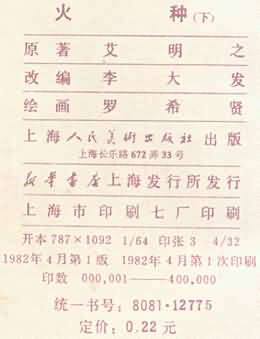 火 种(下)
原著 艾明之
改编 李大发
绘画 罗希贤
上海人民美術出版社出版
上海长乐路672弄33号
新华書店上海发行所发行
上海市印刷七厂印刷
开本787×1092 1/64 印张3 4/32
1982年4月第1版 1982年4月第1次印刷
印数 000,001——400,000
统一书号：8081·12775
定价：0.22元